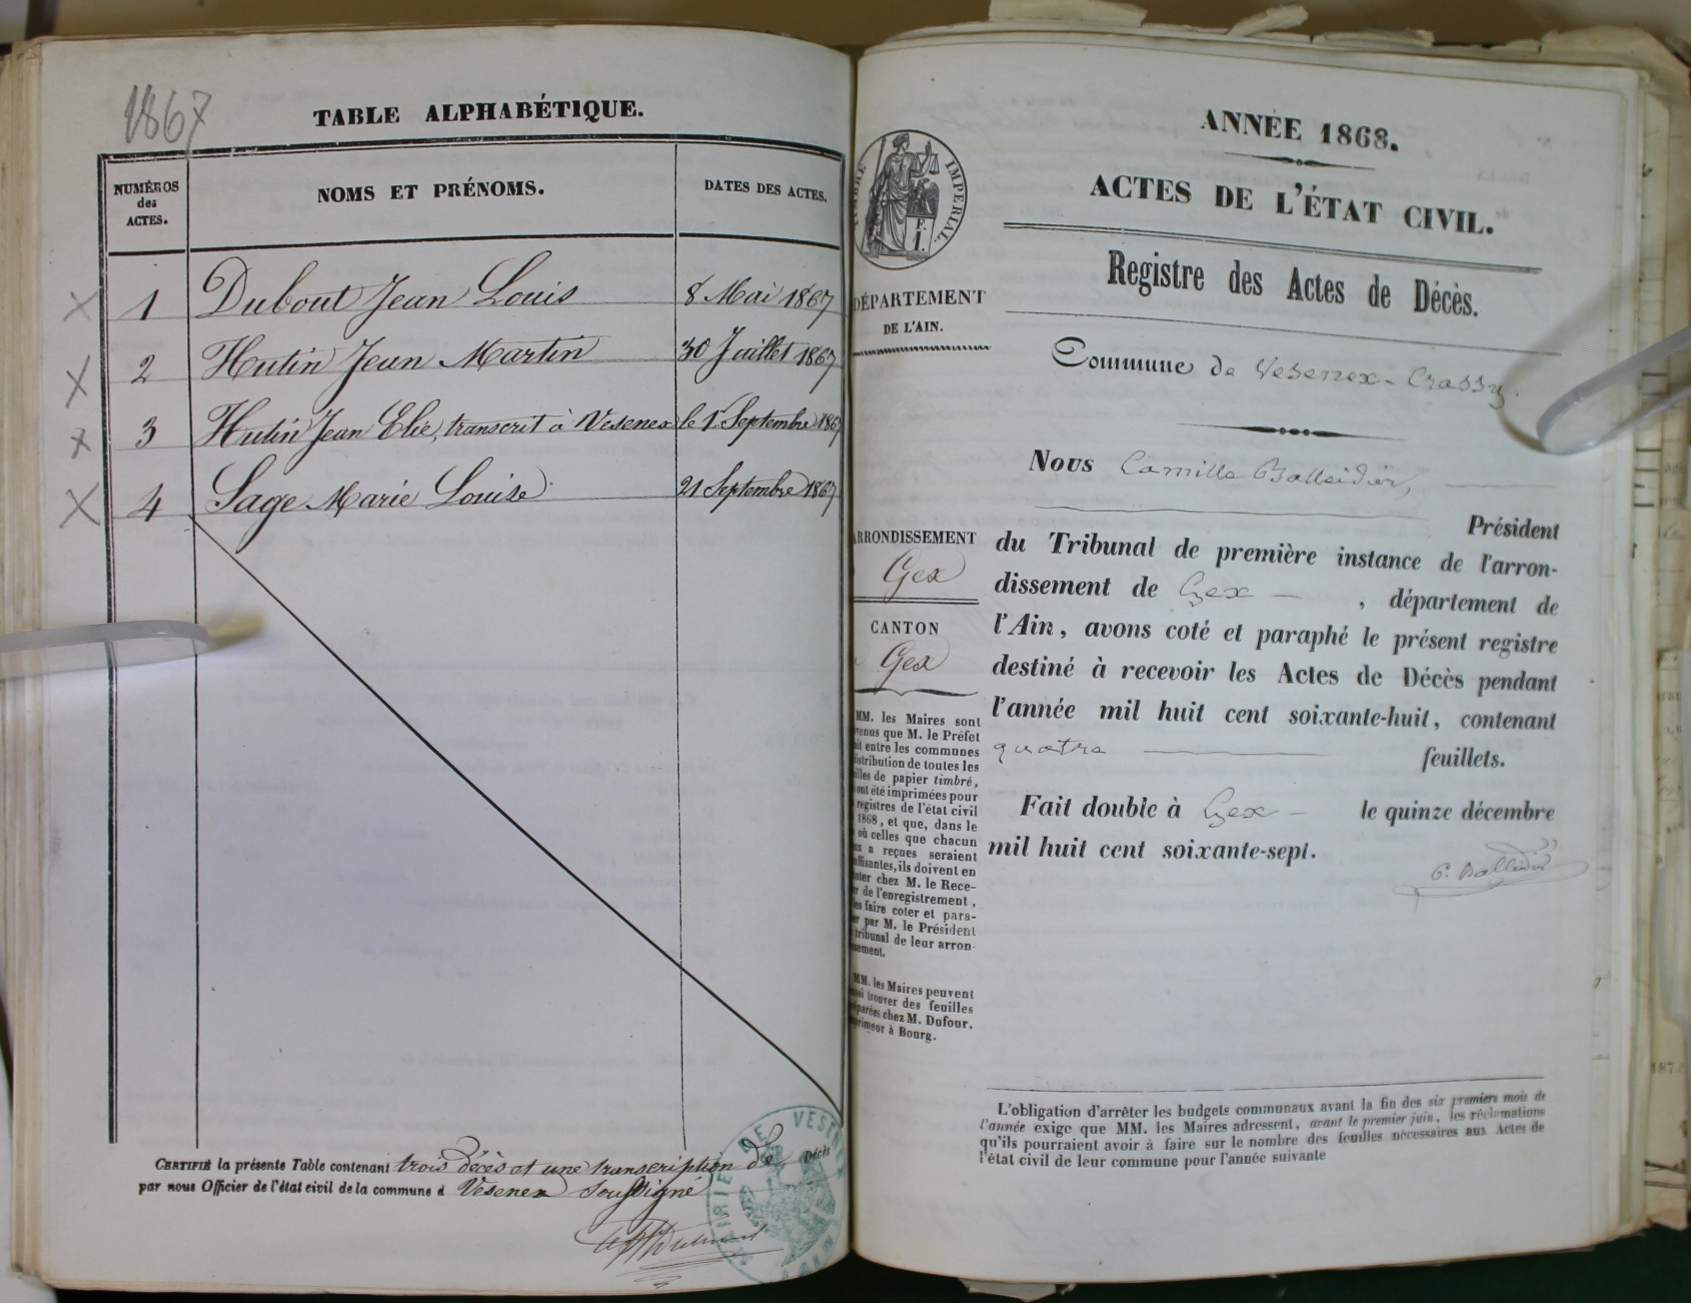 1867
TABLE ALPHABÉTIQUE.
NUMÉROS des ACTES.
NOMS ET PRÉNOMS.
DATES DES ACTES.
1 Dubout Jean Louis 8 Mai 1867
2 Hutin Jean Martin 30 Juillet 1867
3 Hutin Jean Elie, transcrit à Vesenex le 1r Septembre 1867
4 Sage Marie Louise 21 Septembre 1867
CERTIFIÉ la présente Table contenant trois décès et une transcription de Décès
par nous Officier de l'état civil de la commune d Vesenex Soussigné
MAIRIE DE VESEN
AIN
ANNÉE 1868.
ACTES DE L'ÉTAT CIVIL.
Registre des Actes de Décès.
TIMBRE IMPÉRIAL.
DÉPARTEMENT
DE L'AIN.
Commune de Vesenex-Crassy.
Nous Camille Balleidier,
Président
du Tribunal de première instance de l'arron-
dissement de Gex, département de
l'Ain, avons coté et paraphé le présent registre
destiné à recevoir les Actes de Décès pendant
l'année mil huit cent soixante-huit, contenant
quatre feuillets.
Fait double à Gex le quinze décembre
mil huit cent soixante-sept.
C. Balleidier
ARRONDISSEMENT
Gex
CANTON
Gex
MM. les Maires sont
venus que M. le Préfet
it entre les communes
istribution de toutes les
illes de papier timbré,
ont été imprimées pour
registres de l'état civil
1868, et que, dans le
où celles que chacun
ux a reçues seraient
uffisantes, ils doivent en
eter chez M. le Rece-
r de l'enregistrement,
es faire coter et para-
er par M. le Président
tribunal de leur arron-
ssement.
MM. les Maires peuvent
ssi trouver des feuilles
parées chez M. Dufour,
primeur à Bourg.
L'obligation d'arrêter les budgets communaux avant la fin des six premiers mois de
l'année exige que MM. les Maires adressent, avant le premier juin, les réclamations
qu'ils pourraient avoir à faire sur le nombre des feuilles nécessaires aux Actes de
l'état civil de leur commune pour l'année suivante